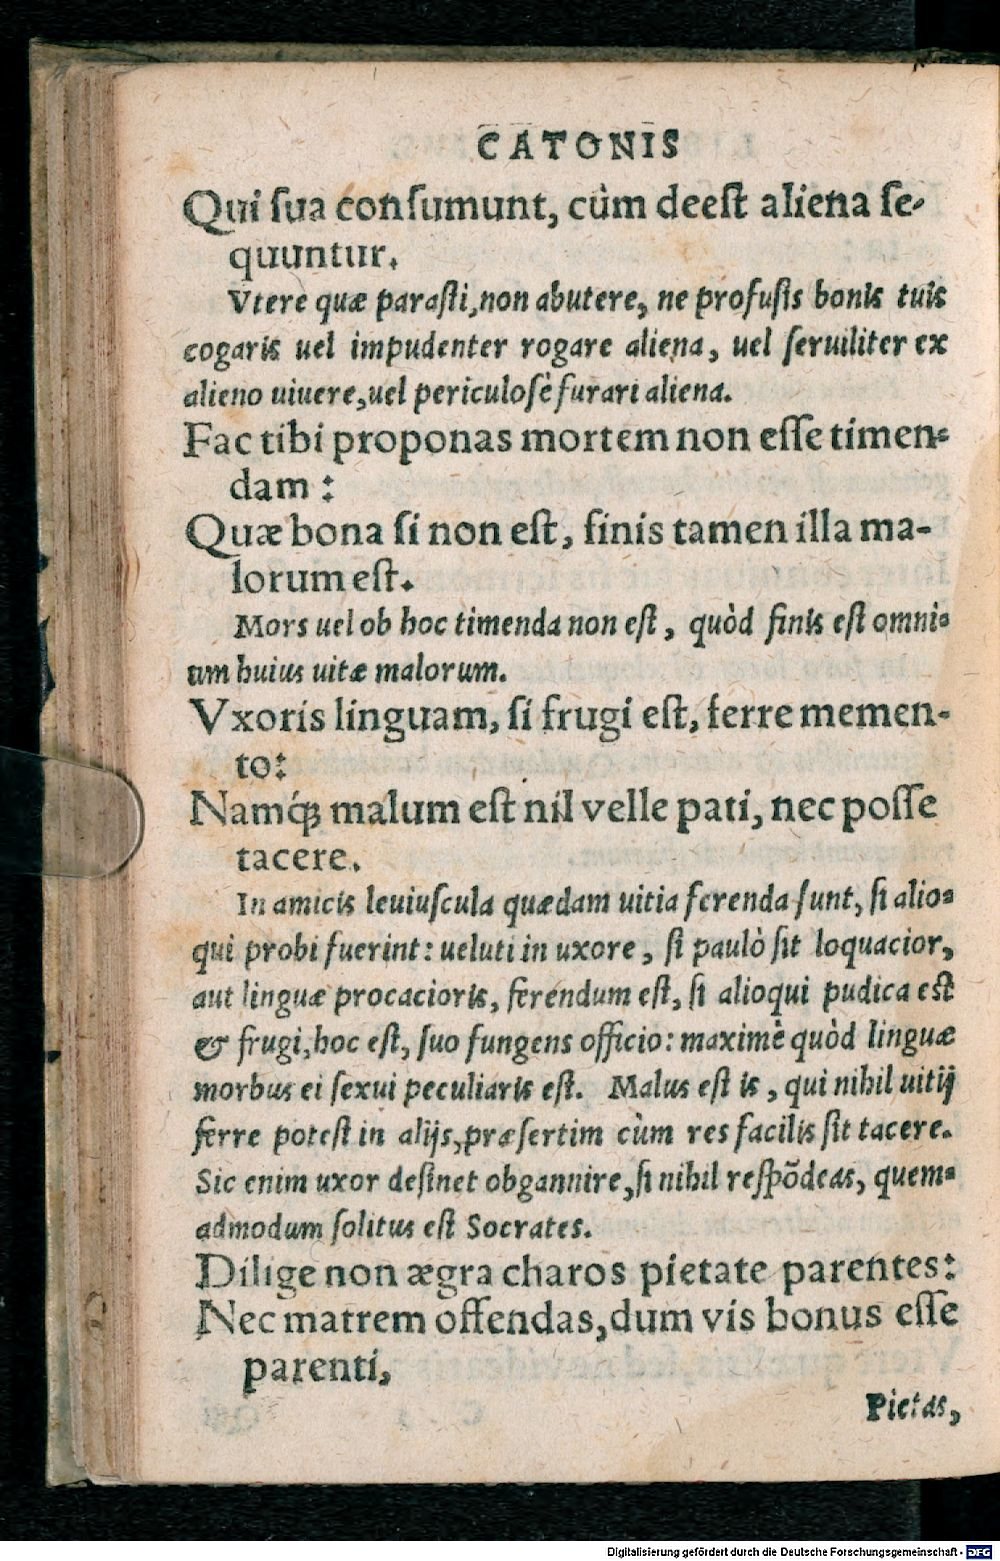 CATONIS
Qui ſua conſumunt, cùm deeſt aliena ſe-
quuntur.
Vtere quæ paraſti, non abutere, ne profuſis bonis tuis
cogaris uel impudenter rogare aliena, uel ſeruiliter ex
alieno uiuere, uel periculoſè furari aliena.
Fac tibi proponas mortem non eſſe timen-
dam:
Quæ bona ſi non eſt, finis tamen illa ma-
lorum eſt.
Mors uel ob hoc timenda non eſt, quòd finis eſt omni-
um huius uitæ malorum.
Vxoris linguam, ſi frugi eſt, ferre memen-
to:
Namq́; malum eſt nil velle pati, nec poſſe
tacere.
In amicis leuiuſcula quædam uitia ferenda ſunt, ſi alio-
qui probi fuerint: ueluti in uxore, ſi paulò ſit loquacior,
aut linguæ procacioris, ferendum eſt, ſi alioqui pudica eſt
& frugi, hoc eſt, ſuo fungens officio: maximè quòd linguæ
morbus ei ſexui peculiaris eſt. Malus eſt is, qui nihil uitij
ferre poteſt in alijs, præſertim cùm res facilis ſit tacere.
Sic enim uxor deſinet obgannire, ſi nihil reſpõdeas, quem-
admodum ſolitus eſt Socrates.
Dilige non ægra charos pietate parentes:
Nec matrem offendas, dum vis bonus eſſe
parenti,
Pietas,
Digitalisierung gefördert durch die Deutsche Forschungsgemeinschaft - DFG